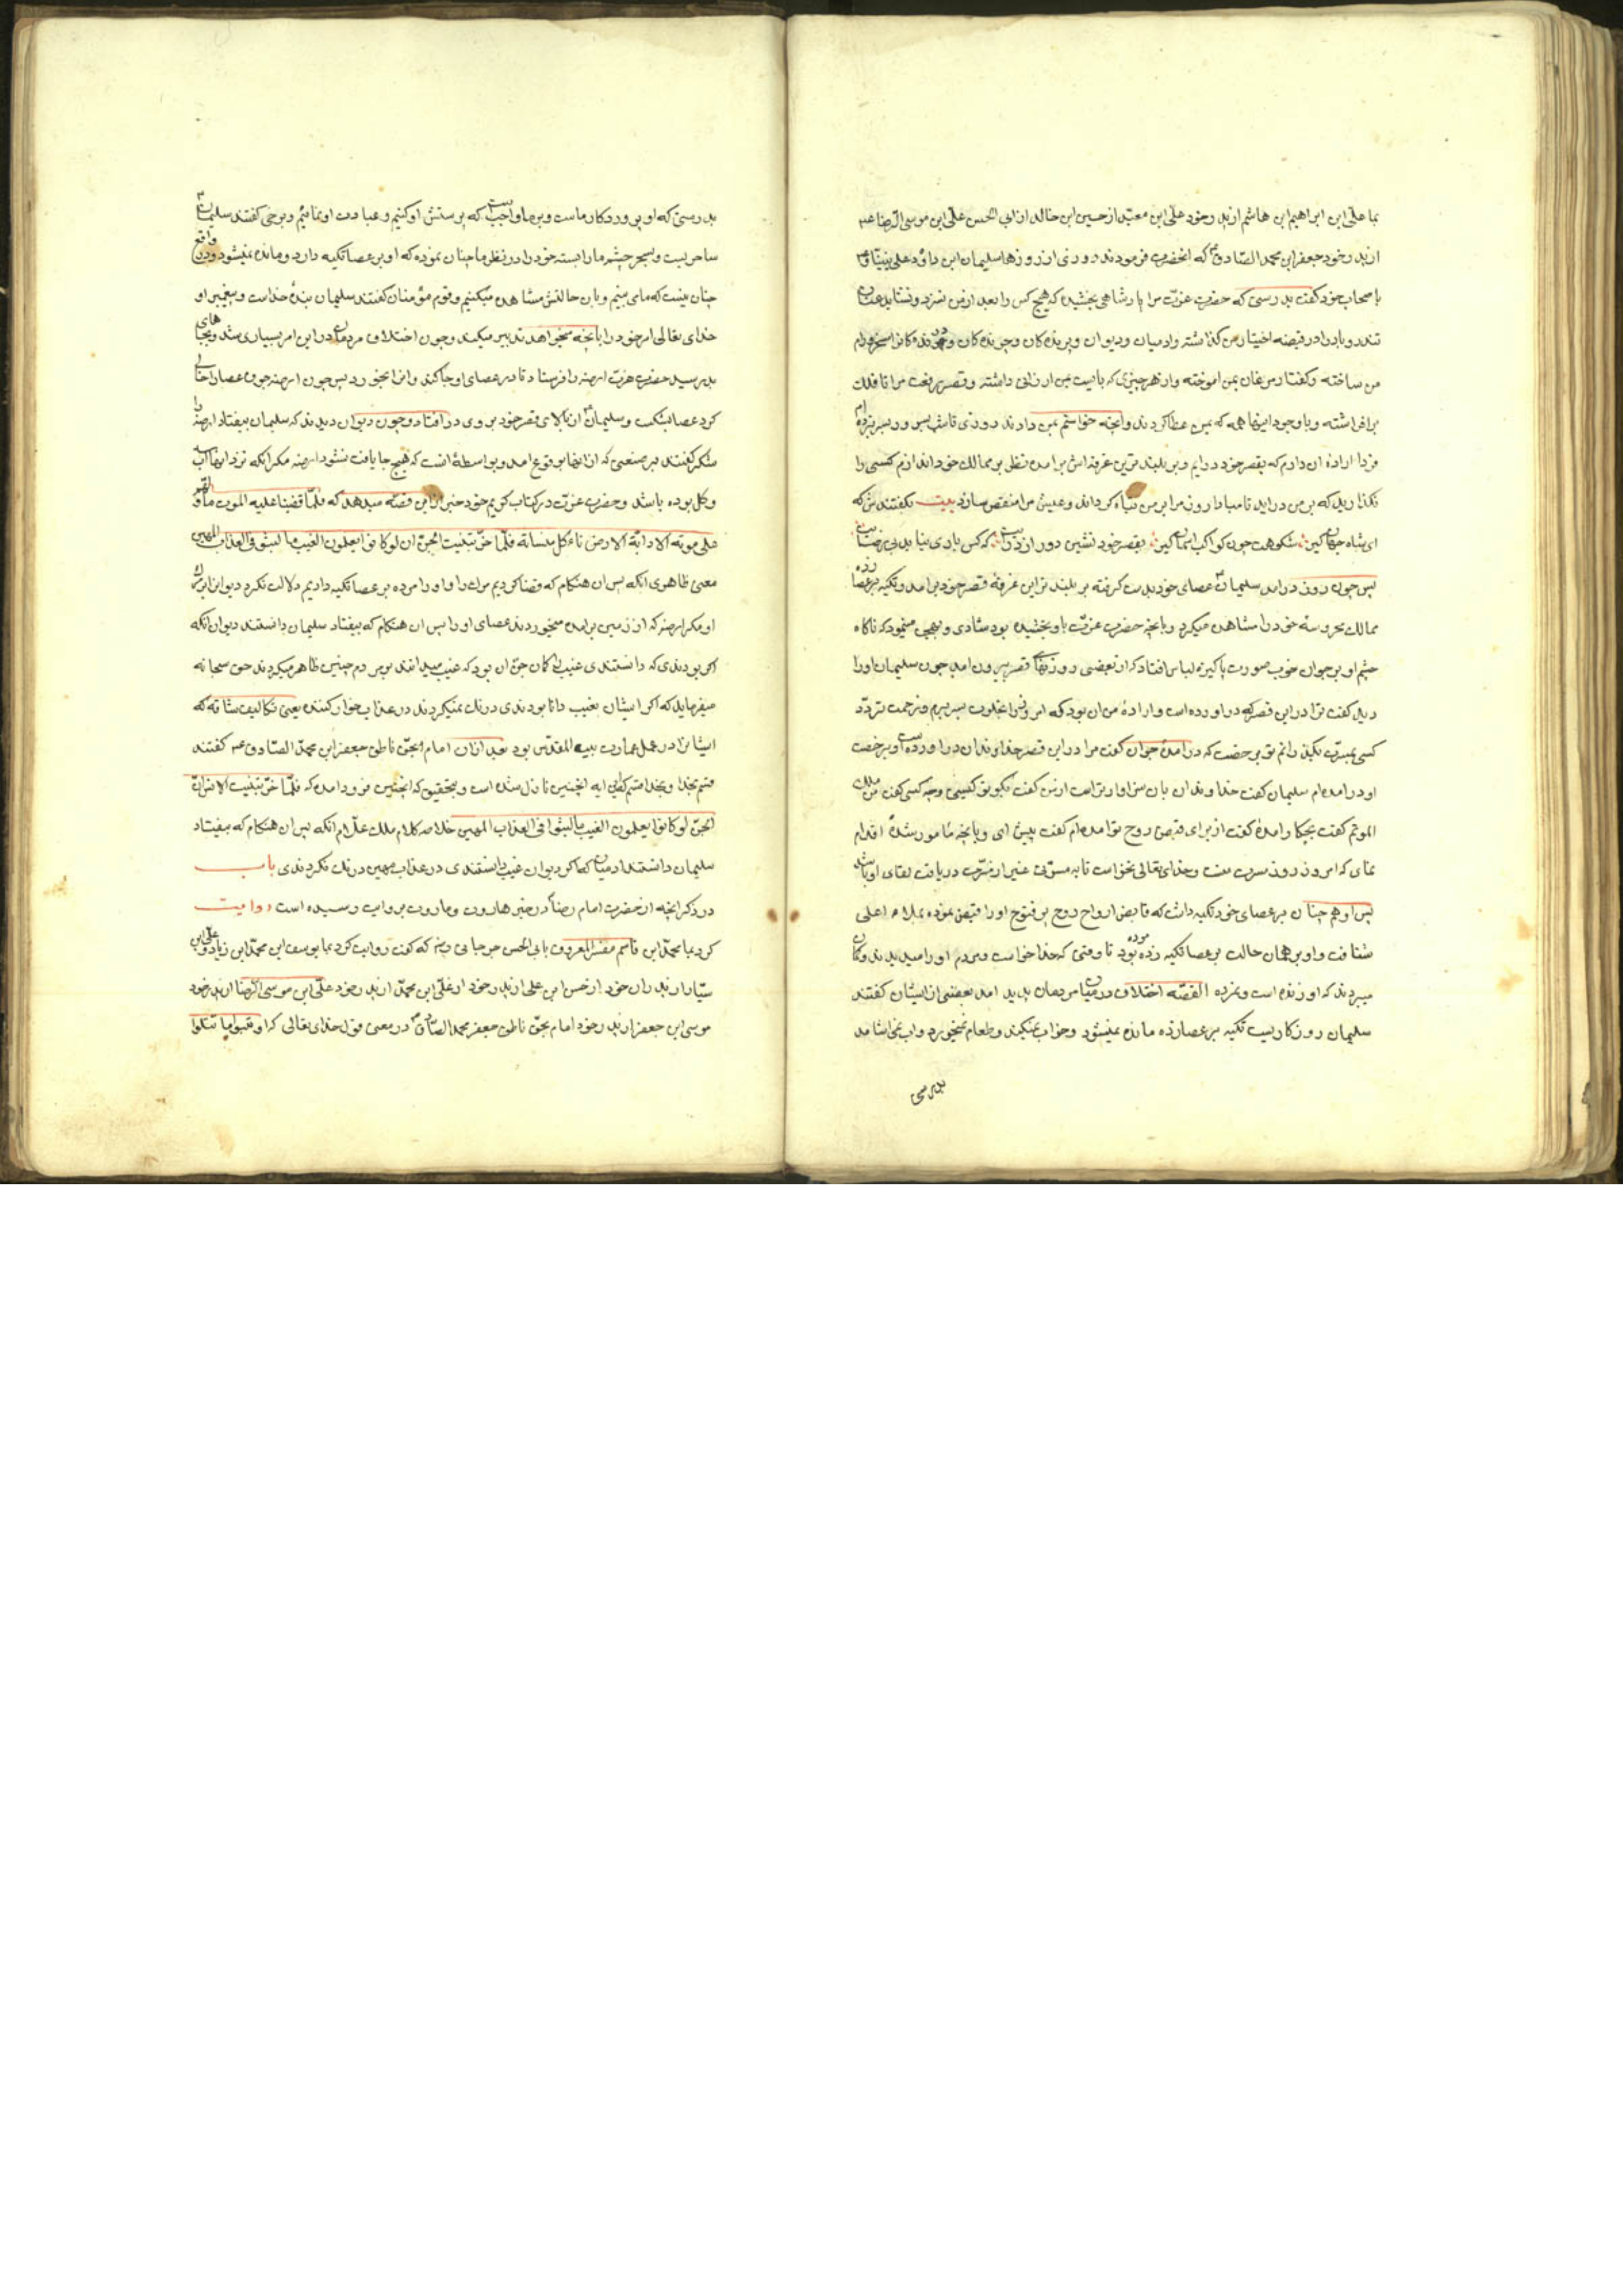 بما علی ابن ابراهیم ابن هاشم از پدر خود علی ابن معبد از حسین ابن خالد از ابی الحسن علی ابن موسی الرضا عم
از پدر خود جعفر ابن محمد الصادق ع که انحضرت فرمودند روزی از روزها سلیمان ابن داود علی نبینا و عم
باصحاب خود کفت بدرستی که حضرت عزت مرا پادشاهی بخشیده که هیچ کس را بعد از من نسزد و نشاید عنان
تند و باد را در قبضه اختیار من کذاشته وادمیان ودیوان وپرنده کان وچرنده کان و درنده کانرا مسخر و رام
من ساخته وکفتار مرغان بمن اموخته واز هر چیزی که بایست بمن ارزانی داشته وقصر رفعت مرا تا فلک
برافراشته وباوجود اینها همه که بمن عطا کردند وانچه خواستم بمن دادند روزی تا شب بسرور بسر نبرده ام
فردا اراده ان دارم که بقصر خود درایم وبر بلندترین غرفه اش برامده نظر بر ممالک خود اندازم کسی را
نکذارید که بر من دراید تا مبادا روز مرا بر من تباه کرداند وعیش مرا منقص سازد بیت بکفتندش که
ای شاه جهان کین شکوهت چون کواکب اسمان کین بقصر خود نشین دور از درت که کس یادی نیابد بی رضایت
پس چون روز درامد سلیمان ع عصای خود بدست کرفته بر بلندترین غرفهٔ قصر خود برامد وتکیه بر عصا زده
ممالک محروسه خود را مشاهده میکرد وبانچه حضرت عزت باو بخشیده بود شادی و بهجی مینمود که ناکاه
چشم او بر جوان خوب صورت پاکیزه لباس افتاد که از بعضی روزنهای قصر بیرون امد چون سلیمان او را
دید کفت ترا در این قصر که در اورده است واراده من ان بود که امروز را بخلوت بسر برم وزحمت تردد
کسی نبرم بکو بدانم تو برخصت که درامده جوان کفت مرا در این قصر خداوند ان در اورده است و برخصت
او درامده ام سلیمان کفت خداوند ان بان سزاوارتر است از من کفت بکو تو کیستی وچه کسی کفت من ملک
الموتم کفت بچکار امدهٔ کفت از برای قبض روح تو امده ام کفت پیش ای وبانچه مامور شدهٔ اقدام
نمای که امروز روز سرور منست وخدای تعالی نخواست تا به مسرتی غیر از مسرت دریافت لقای او باشد
پس او هم چنان بر عصای خود تکیه داشت که قابض ارواح روح پر فتوح او را قبض نموده بملاء اعلی
شتافت واو بر همان حالت بر عصا تکیه زده مرده بود تا وقتی که خدا خواست ومردم او را میدیدند وکمان
میبردند که او زنده است ونمرده القصه اختلاف در میان مردمان پدید امد بعضی از ایشان کفتند
سلیمان روزکاریست تکیه بر عصا زده مانده نمیشود وخواب نمیکند وطعام نمیخورد واب نمی اشامد
بدرستی
بدرستی که او پروردکار ماست وبر ما واجبست که پرستش او کنیم وعبادت او نمائیم وبرخی کفتند سلیمان ع
ساحریست وبسحر چشم ما را بسته خود را در نظر ما چنان نموده که او بر عصا تکیه دارد ومانده نمیشود ودر واقع
چنان نیست که ما می بینیم وبان حالتش مشاهده میکنیم وقوم مؤمنان کفتند سلیمان بندهٔ خداست وپیغمبر او
خدای تعالی امر خود را بانچه میخواهد تدبیر میکند وچون اختلاف مردمان در این امر بسیاری شد وبجاهای
بد رسید حضرت عزت ارضه را فرستاد تا در عصای او جا کند وانرا بخورد پس چون ارضه جوف عصا را خالی
کرد عصا بشکست وسلیمان ع از بالای قصر خود بر وی در افتاد وچون دیوان دیدند که سلیمان بیفتاد ارضه را
شکر کفتند بر صنعی که از انها بوقوع امد وبواسطهٔ انست که هیچ جا یافت نشود ارضه مکر انکه نزد انها اب
وکل بوده باشد وحضرت عزت در کتاب کریم خود خبر از این قصه میدهد که فلما قضینا علیه الموت ما دلهم
علی موته الا دابة الارض تاءکل منساته فلما خر تبینت الجن ان لو کانوا یعلمون الغیب ما لبثوا فی العذاب المهین
معنی ظاهری انکه پس ان هنکام که قضا کردیم مرک را او را مرده بر عصا تکیه دادیم دلالت نکرد دیوانرا بر مرک
او مکر ارضه که از زمین برامده میخوردند عصای او را پس ان هنکام که بیفتاد سلیمان دانستند دیوان انکه
اکر بودندی که دانستندی غیب را کمان جن ان بود که غیب میدانند بر مردم چنین ظاهر میکردند حق سبحانه
میفرماید که اکر ایشان بغیب دانا بودندی درنک نمیکردند در عذاب خوار کننده یعنی تکالیف شاقه که
ایشانرا در عمل عمارت بیت المقدس بود بعد از ان امام بحق ناطق جعفر ابن محمد الصادق عم کفتند
قسم بخدا وبخدا قسم که این ایه اینچنین نازل شده است وبتحقیق که اینچنین فرود امده که فلما خر تبینت الانس ان
الجن لو کانوا یعلمون الغیب ما لبثوا فی العذاب المهین خلاصه کلام ملک علام انکه پس ان هنکام که بیفتاد
سلیمان دانستند ادمیان که اکر دیوان غیب دانستندی در عذاب مهین درنک نکردندی باب
در ذکر انچه از حضرت امام رضا ع در خبر هاروت وماروت بروایت رسیده است روایت
کرد بما محمد ابن قاسم مفسر المعروف بابی الحسن جرجانی رض که کفت روایت کرد بما یوسف ابن محمد ابن زیاد وعلی ابن
سیار از پدران خود از حسن ابن علی از پدر خود از علی ابن محمد از پدر خود علی ابن موسی الرضا از پدر خود
موسی ابن جعفر از پدر خود امام بحق ناطق جعفر محمد الصادق ع در معنی قول خدای تعالی که واتبعوا ما تتلوا